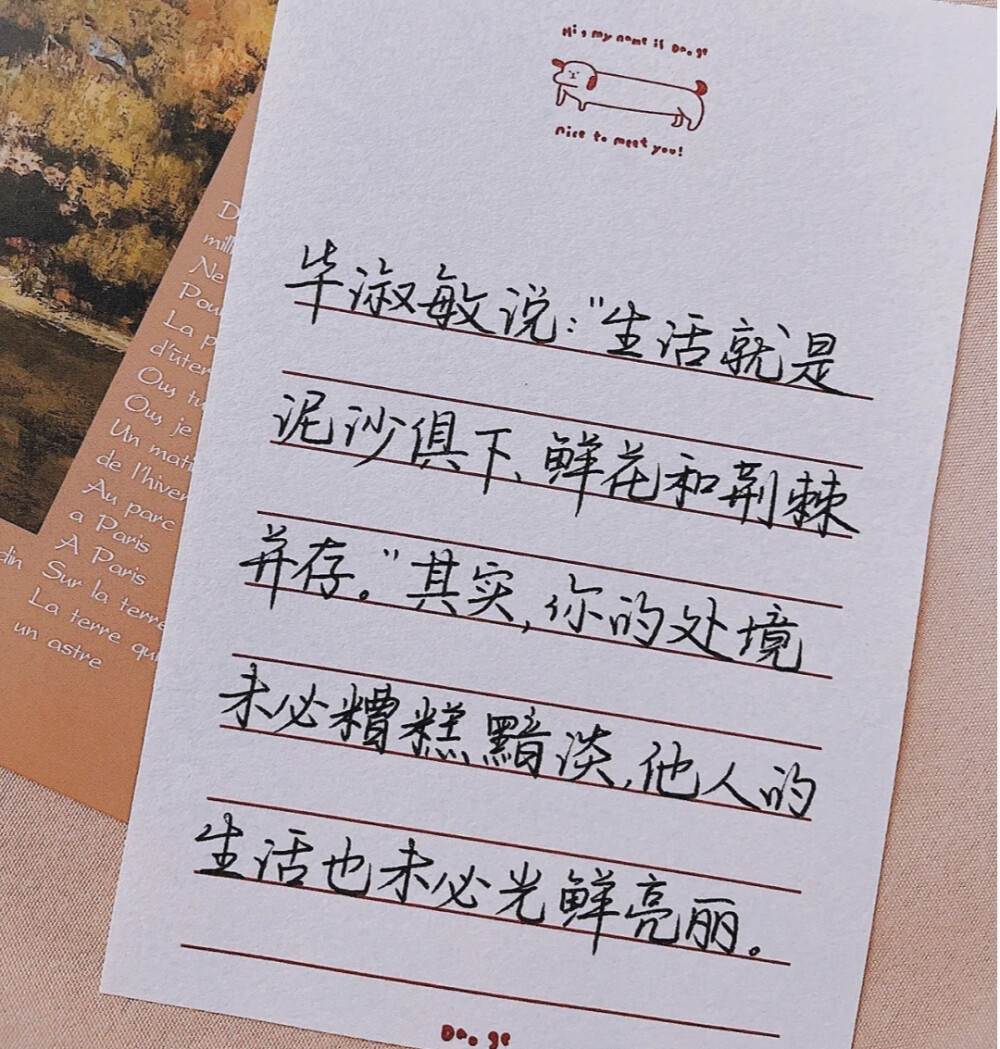 Hi, my name is Dao.ge
nice to meet you!
毕淑敏说:"生活就是
泥沙俱下、鲜花和荆棘
并存。"其实,你的处境
未必糟糕黯淡,他人的
生活也未必光鲜亮丽。
Dao.ge
Ne
La p
d'üter
Ous tu
Ous je
Un mati
de l'hiver
Au parc
a Paris
A Paris
din Sur la terre
La terre qui
un astre